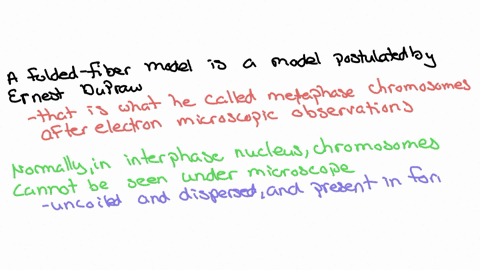 A folded-fiber model is a model postulated by
Ernest DuPraw
-that is what he called metaphase chromosomes
after electron microscopic observations
Normally, in interphase nucleus, chromosomes
cannot be seen under microscope
-uncoiled and dispersed, and present in for